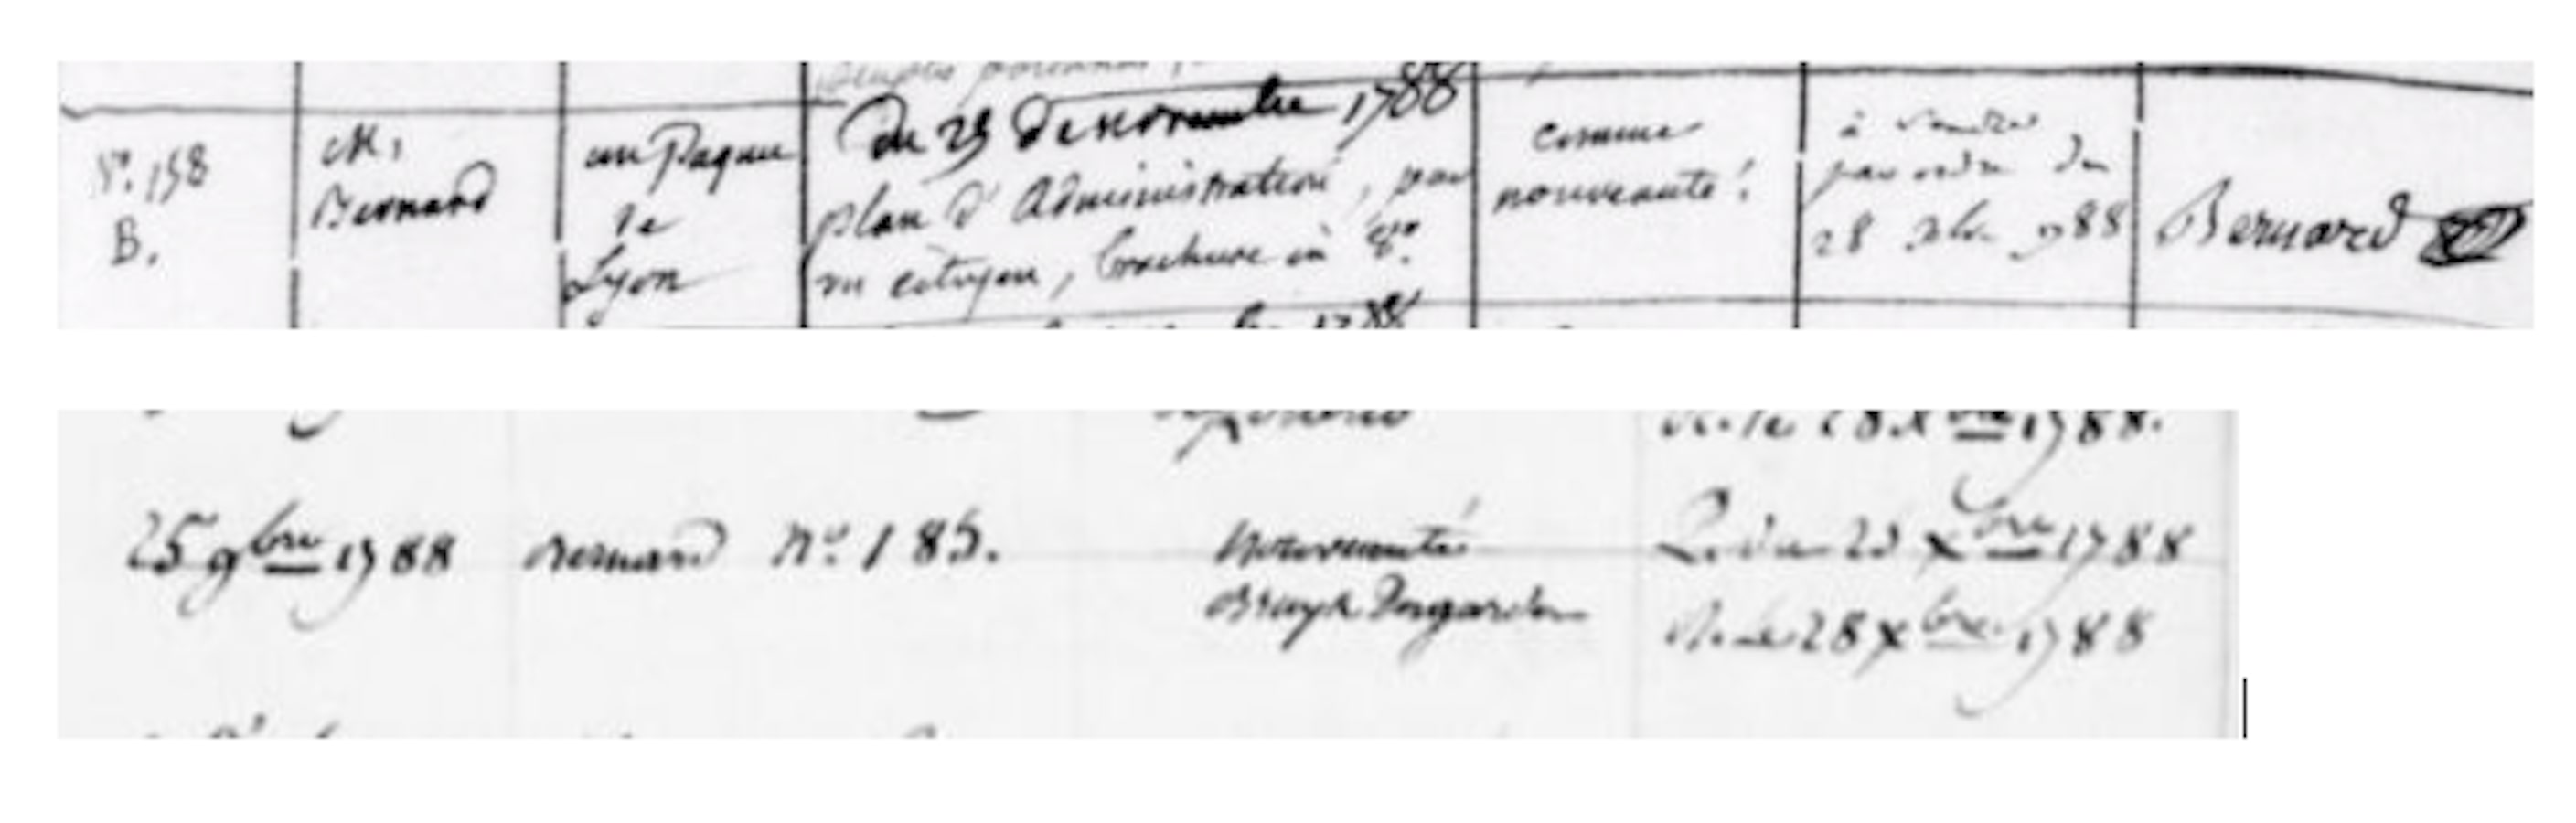 Du 25 de novembre 1788
N.º 158
B.
M.
Bernard
un Paquet
de
Lyon
plan d'Administration, par
un citoyen, brochure in 8º.
comme
nouveauté.
à rendre
par ordre du
28 xbre 1788
Bernard
25 9bre 1788 Bernard nº. 185.
nouveauté
28 xbre 1788.
xbre 1788
28 xbre 1788